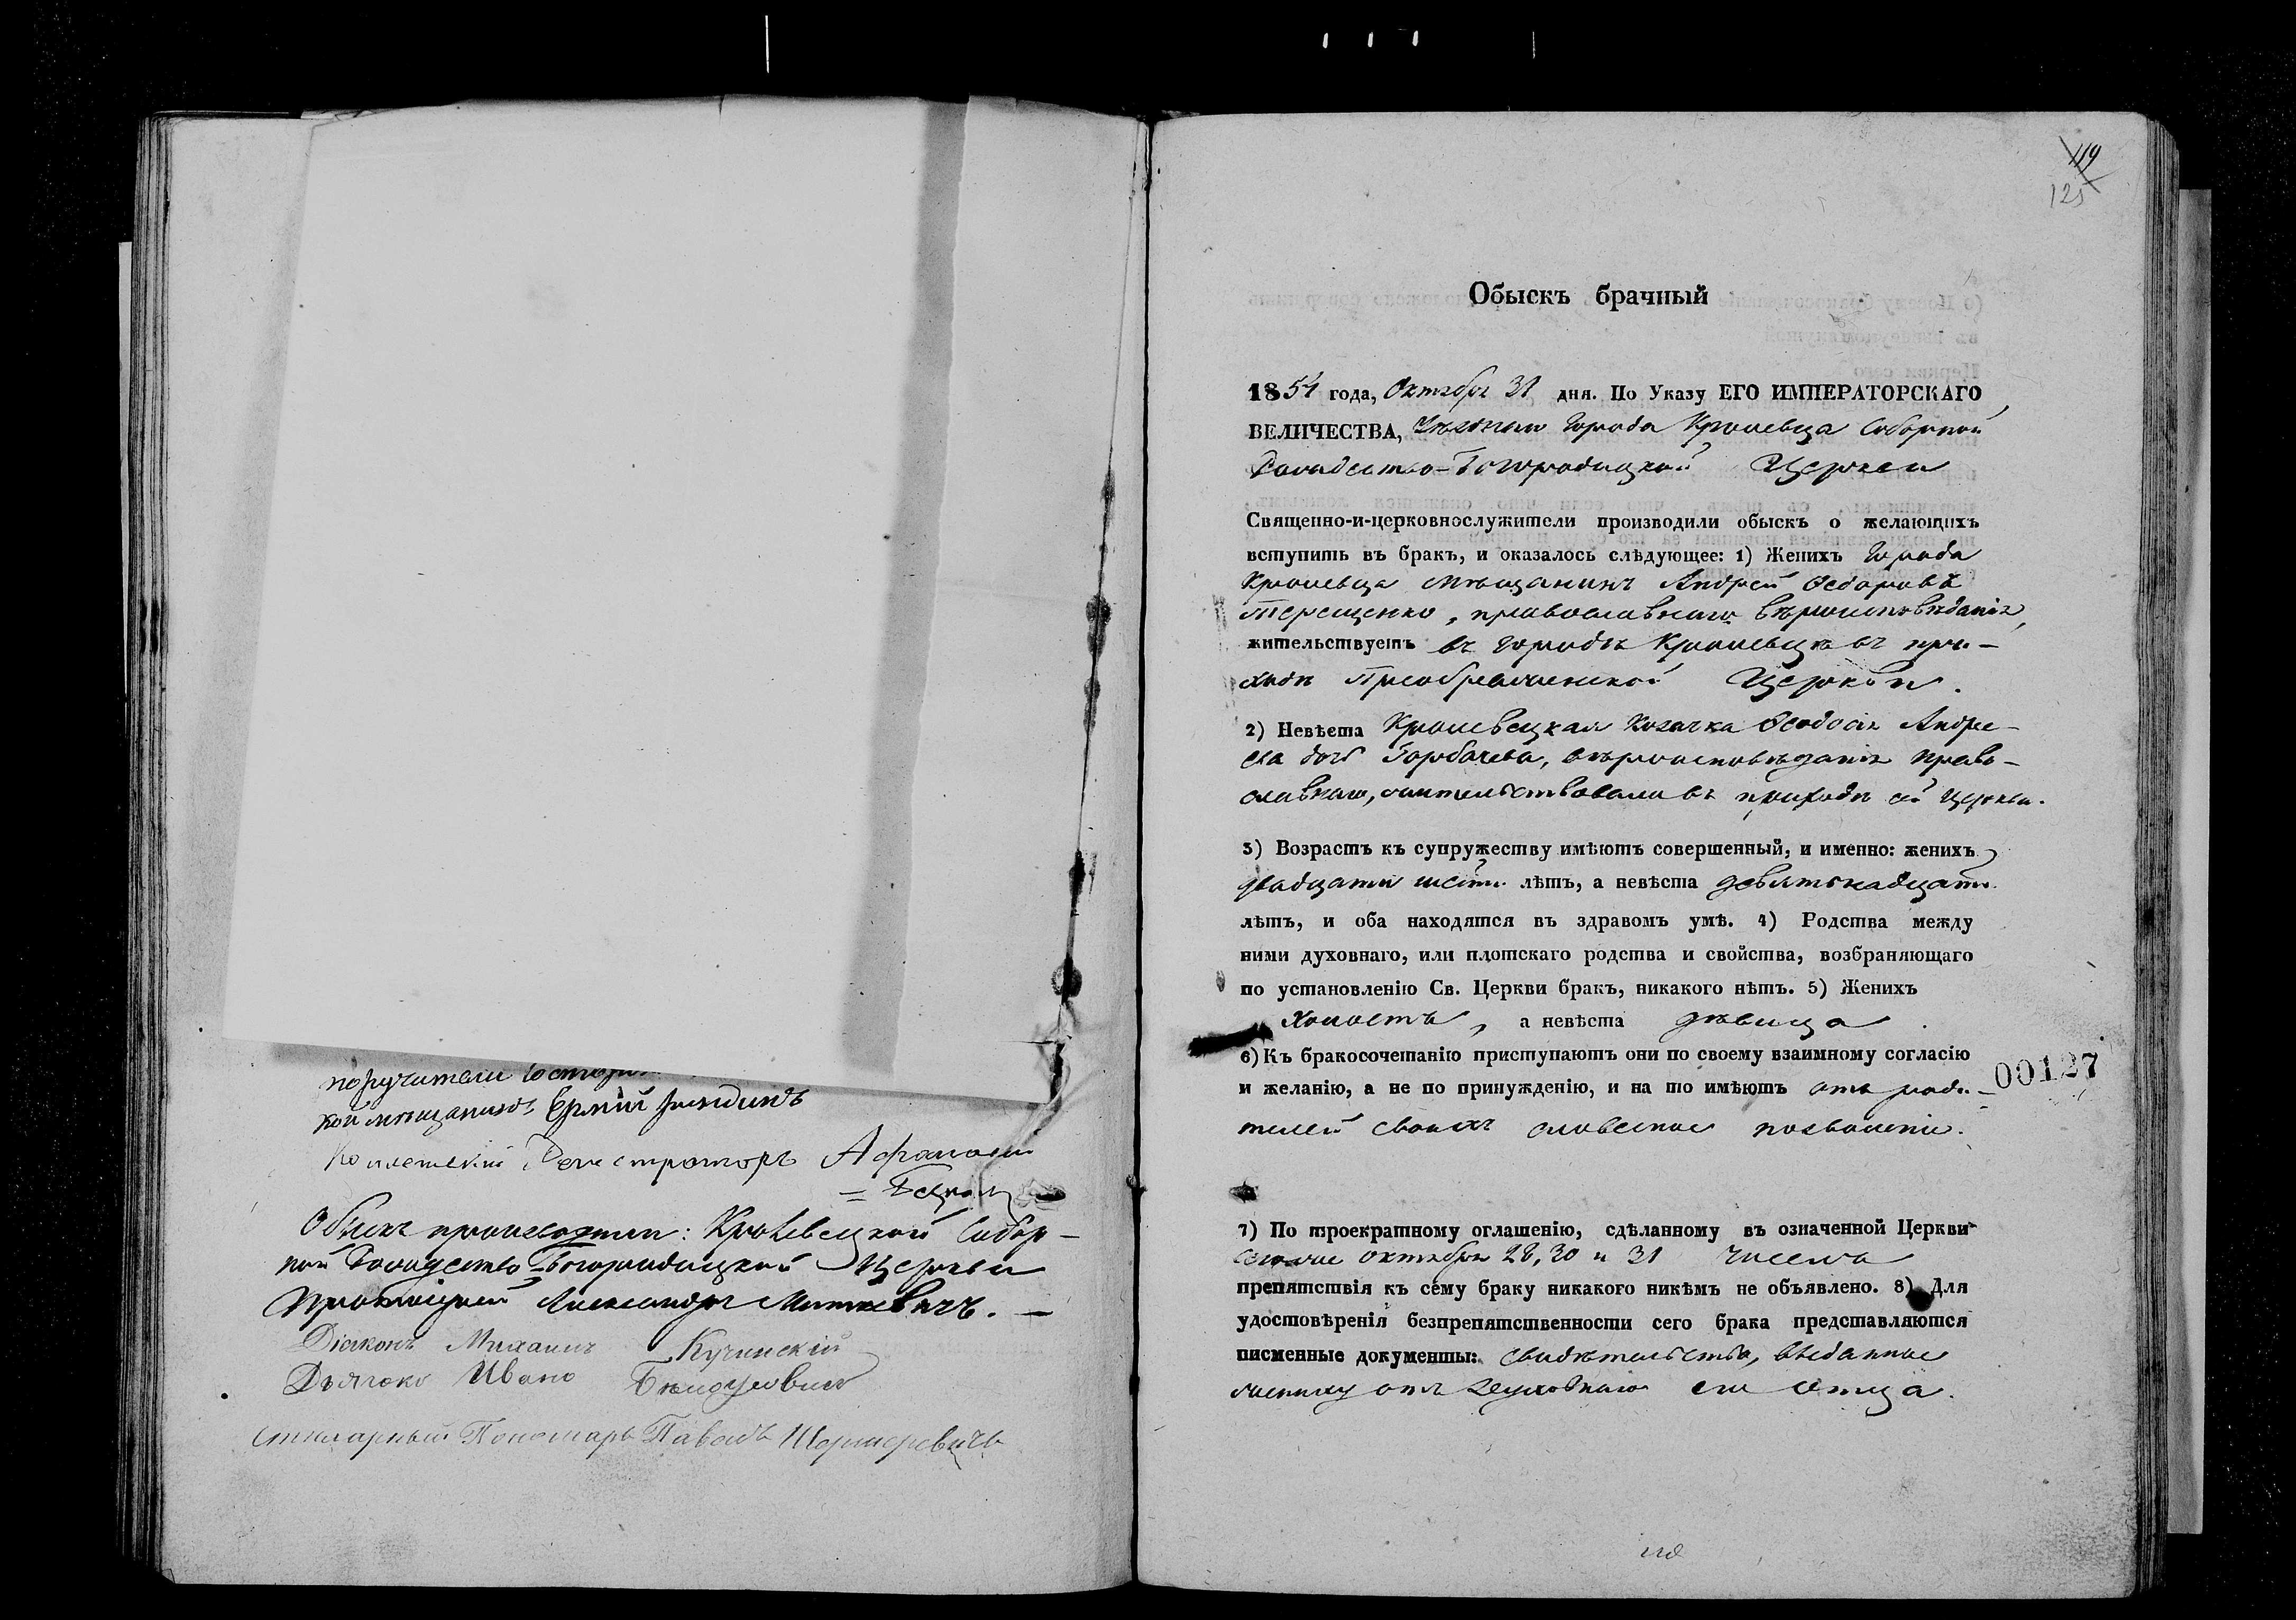 поручители
кой мещанинъ Ермій
Коллежскій Регистраторъ Афанасій
Обыскъ производили: Кролевецкой Собор-
ной Рождество-Богородицкой Церкви
Протоіерей Александръ Миткевичъ. —
Діяконъ Михаилъ Кучинскій
Дьячокъ Иванъ
Пономарь Павелъ
119
125
Обыскъ брачный
1854 года, Октября 31 дня. По Указу ЕГО ИМПЕРАТОРСКАГО
ВЕЛИЧЕСТВА, города Кролевца Соборной
Рождество-Богородицкой Церкви
Священно-и-церковнослужители производили обыскъ о желающихъ
вступить въ бракъ, и оказалось слѣдующее: 1) Женихъ города
Кролевца мѣщанинъ Андрей Ѳедоровъ
Терещенко, православнаго вѣроисповѣданія,
жительствуетъ въ городѣ Кролевцѣ въ при-
ходѣ Преображенской Церкви.
2) Невѣста Кролевецкая Козачка Ѳеодосія Андре-
ева дочь Горбачева, вѣроисповѣданія право-
славнаго, жительствовала въ приходѣ сей Церкви.
3) Возрастъ къ супружеству имѣютъ совершенный, и именно: женихъ
двадцати шести лѣтъ, а невѣста девятнадцати
лѣтъ, и оба находятся въ здравомъ умѣ. 4) Родства между
ними духовнаго, или плотскаго родства и свойства, возбраняющаго
по установленію Св. Церкви бракъ, никакого нѣтъ. 5) Женихъ
холостъ, а невѣста дѣвица.
6) Къ бракосочетанію приступаютъ они по своему взаимному согласію
и желанію, а не по принужденію, и на то имѣютъ отъ роди-
00127
телей своихъ словесное позволеніе.
7) По троекратному оглашенію, сдѣланному въ означенной Церкви
октября 28, 30 и 31 чиселъ
препятствія къ сему браку никакого никѣмъ не объявлено. 8) Для
удостовѣренія безпрепятственности сего брака представляются
писменные документы: свидѣтельство, выданное
жениху отъ духовнаго его отца.